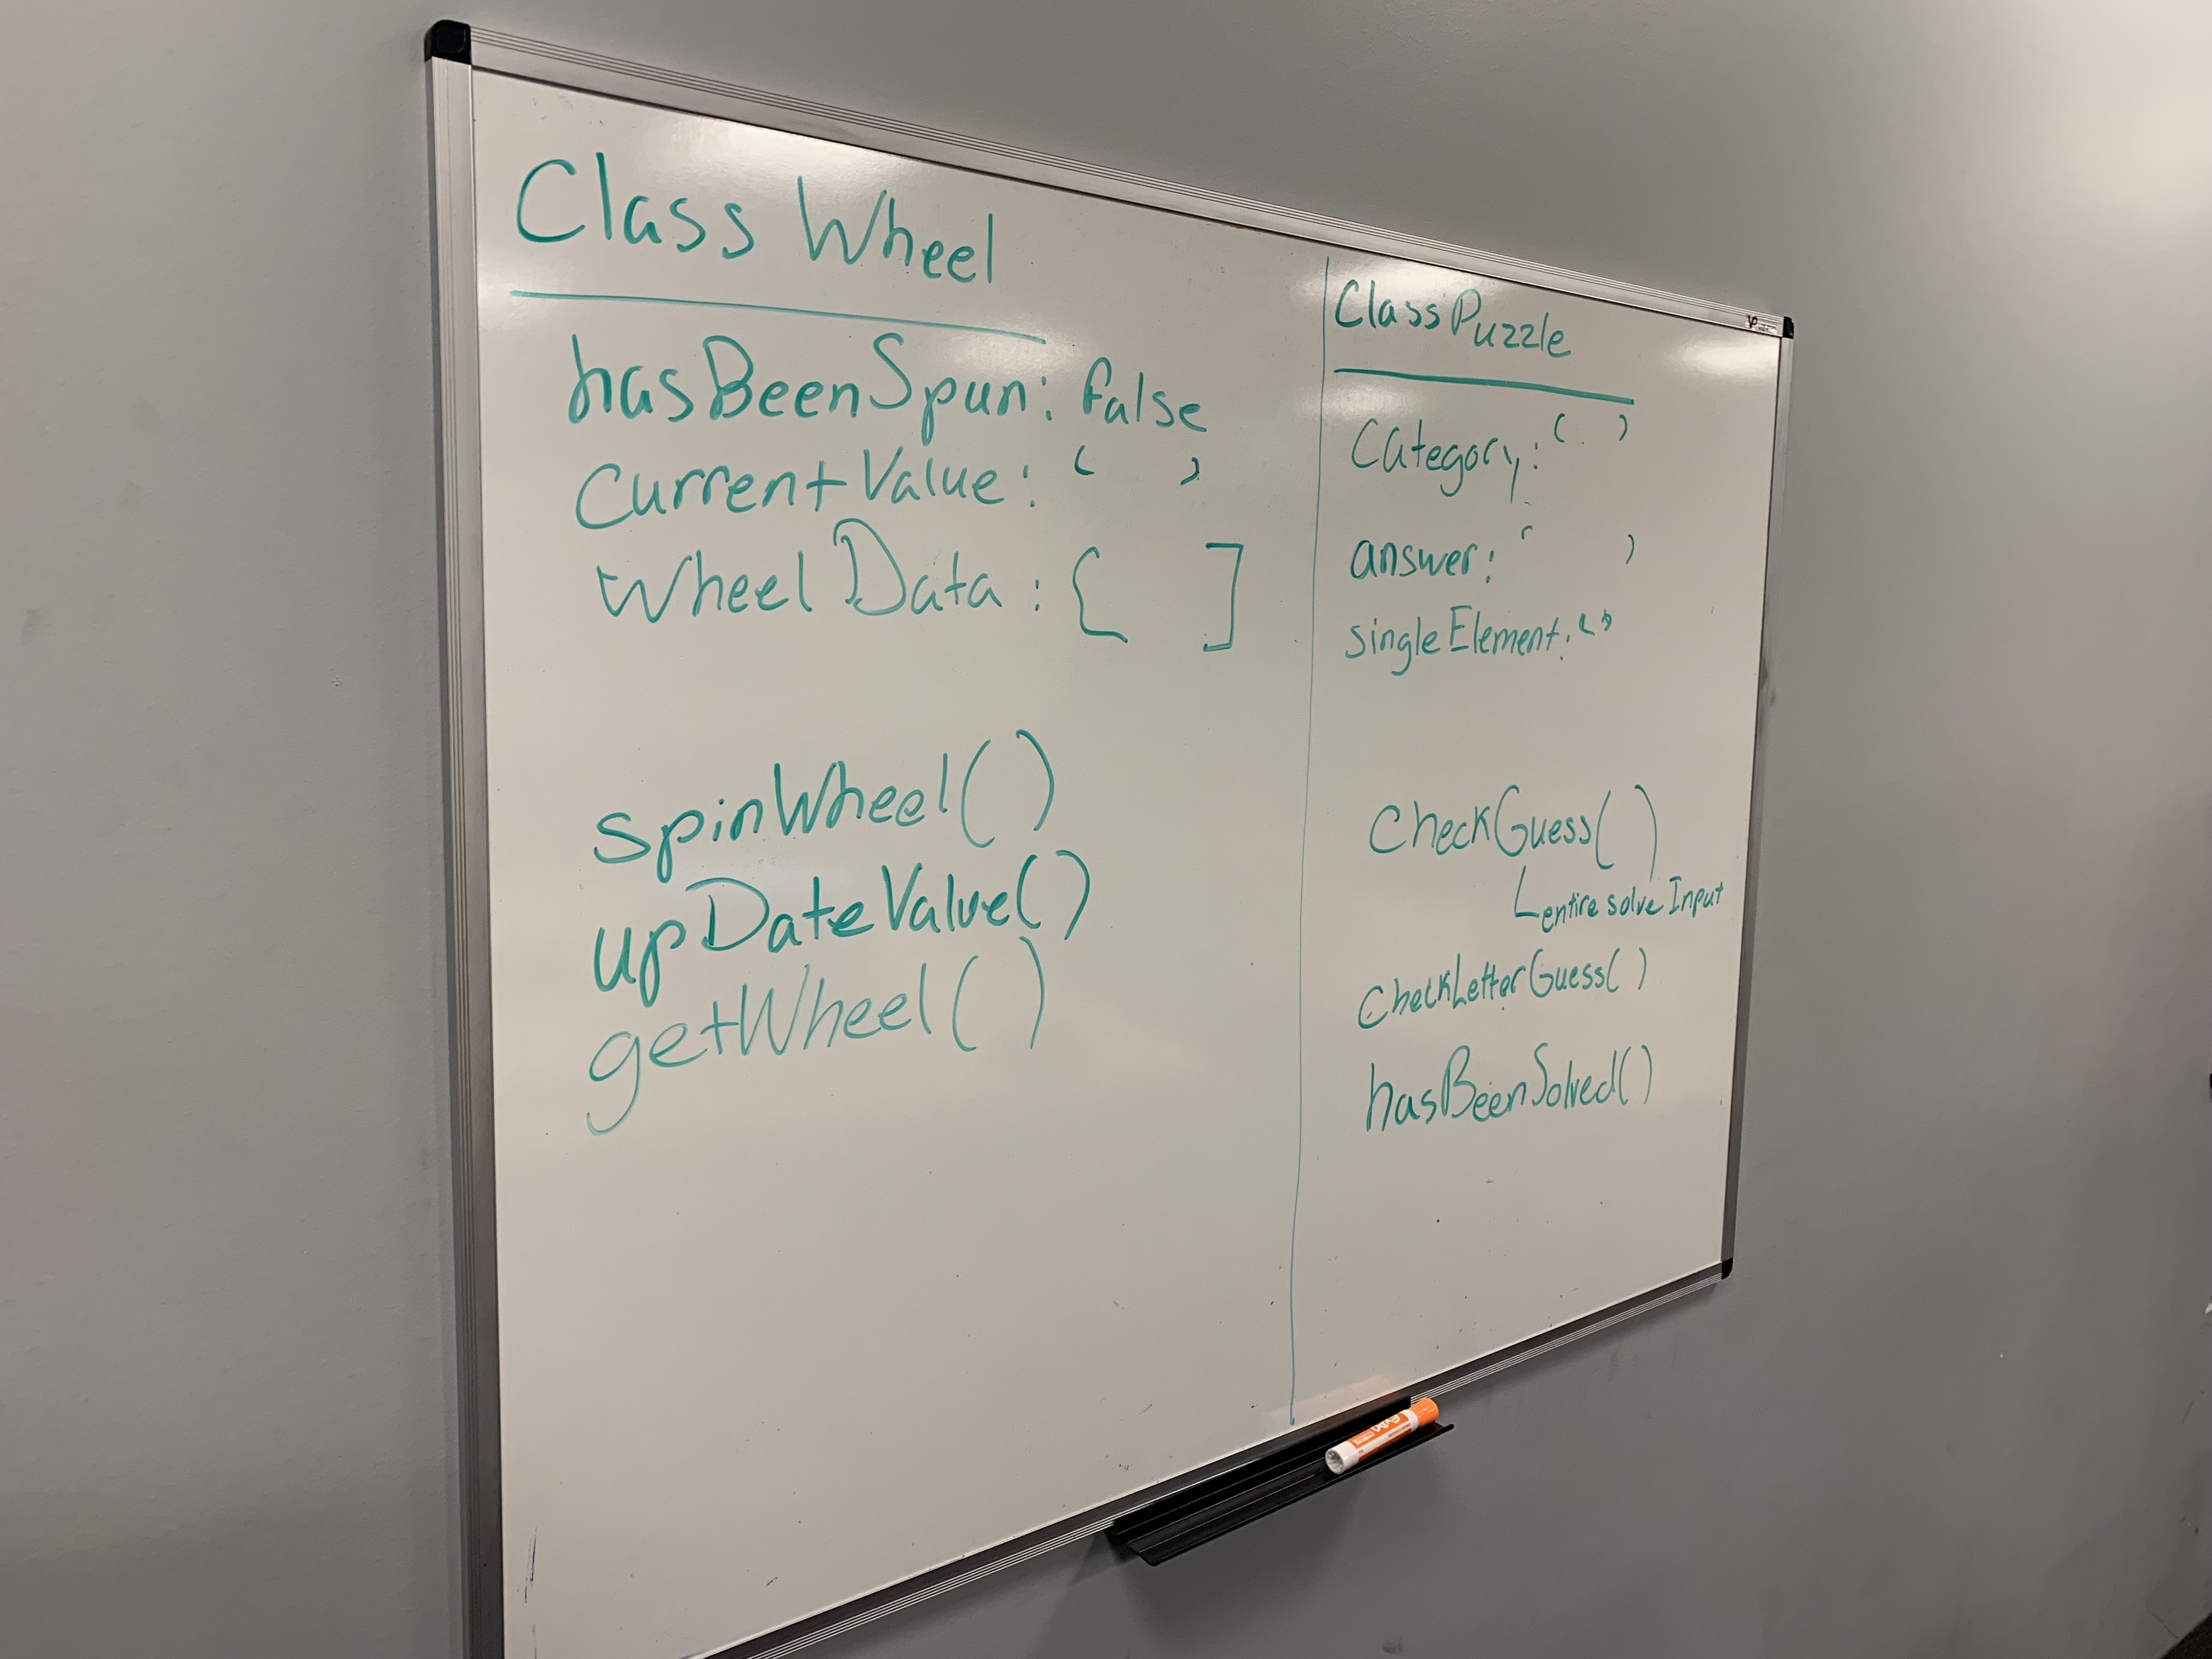 Class Wheel
hasBeenSpun: false
CurrentValue: ' '
WheelData: [ ]
spinWheel()
upDateValue()
getWheel()
Class Puzzle
Category: ' '
answer: ' '
singleElement: ' '
CheckGuess()
entire solve Input
CheckLetterGuess()
hasBeenSolved()
EXPO